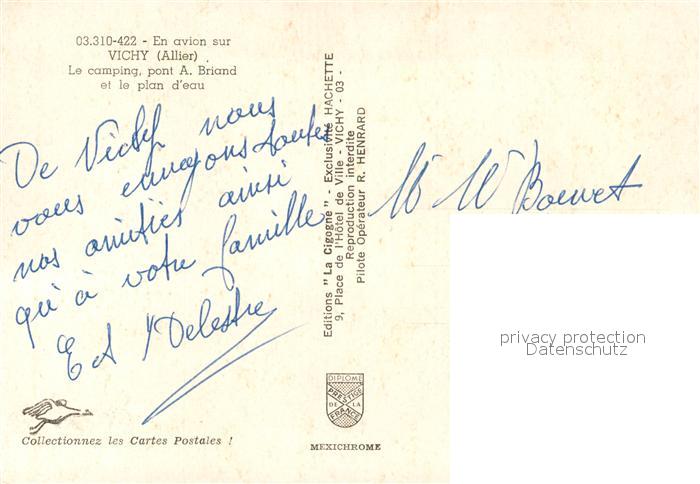 03.310-422 - En avion sur
VICHY (Allier)
Le camping, pont A. Briand
et le plan d'eau
De Vichy nous
vous envoyons toutes
nos amitiés ainsi
qu'à votre famille
E et Delestre
Collectionnez les Cartes Postales !
Editions "La Cigogne" - Exclusivité HACHETTE
9, Place de l'Hôtel de Ville - VICHY - 03 -
Reproduction interdite
Pilote Opérateur R. HENRARD
DIPLOME
PRESTIGE
DE LA
FRANCE
MEXICHROME
Bouvet
privacy protection
Datenschutz